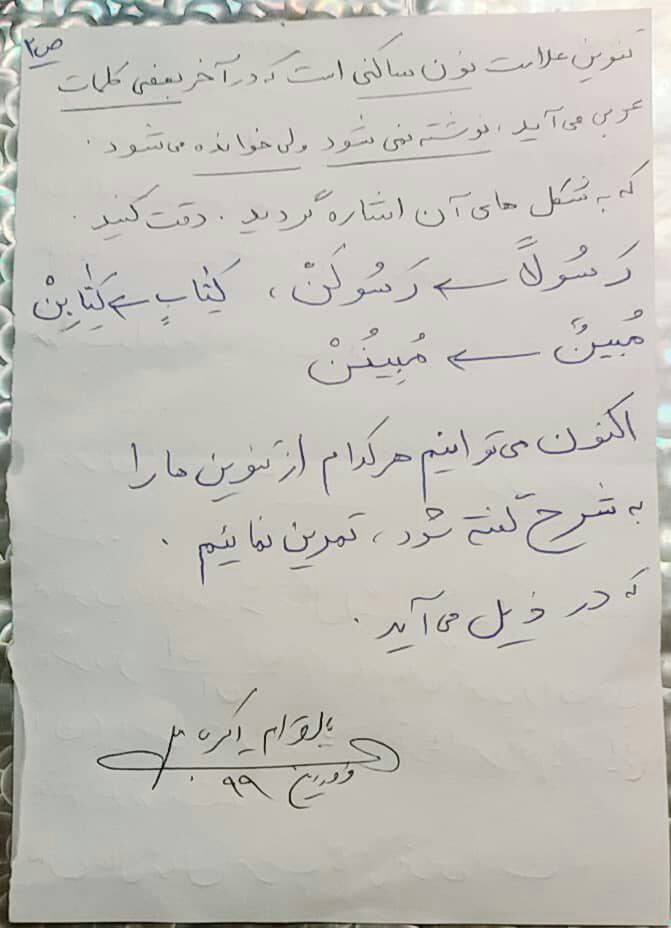 ص۲
تنوین علامت نون ساکنی است که در آخر بعضی کلمات
عربی می‌آید، نوشته نمی شود ولی خوانده می‌شود.
که به شکل های آن اشاره گردید. دقت کنید.
رَسُولاً ← رَسُولَنْ، کِتٰابٍ ← کِتٰابِنْ
مُبینٌ ← مُبِینُنْ
اکنون می‌توانیم هر کدام از تنوین ها را
به شرح گفته شود، تمرین نمائیم.
که در ذیل می‌آید.
فروردین ۹۹